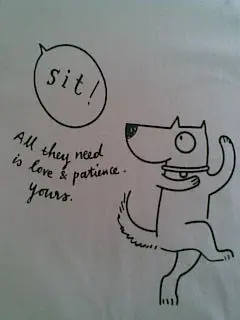 sit!
All they need
is love & patience.
Yours.